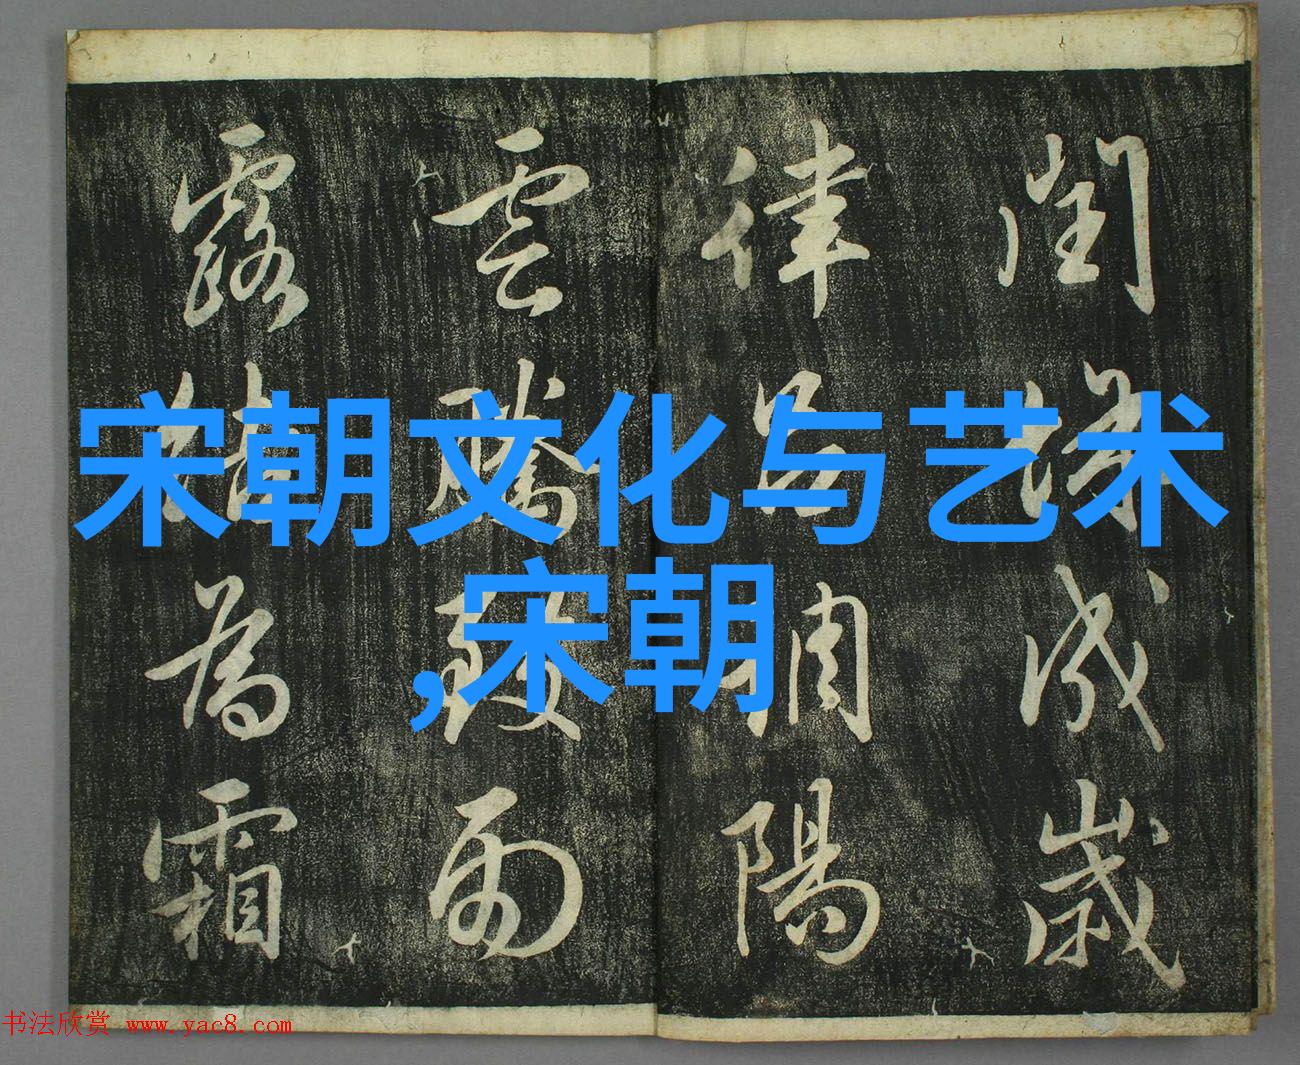 閏餘成歲
律呂調陽
雲騰致雨
露結為霜
宋朝文化与艺术
,宋朝
书法欣赏 www.yac8.com